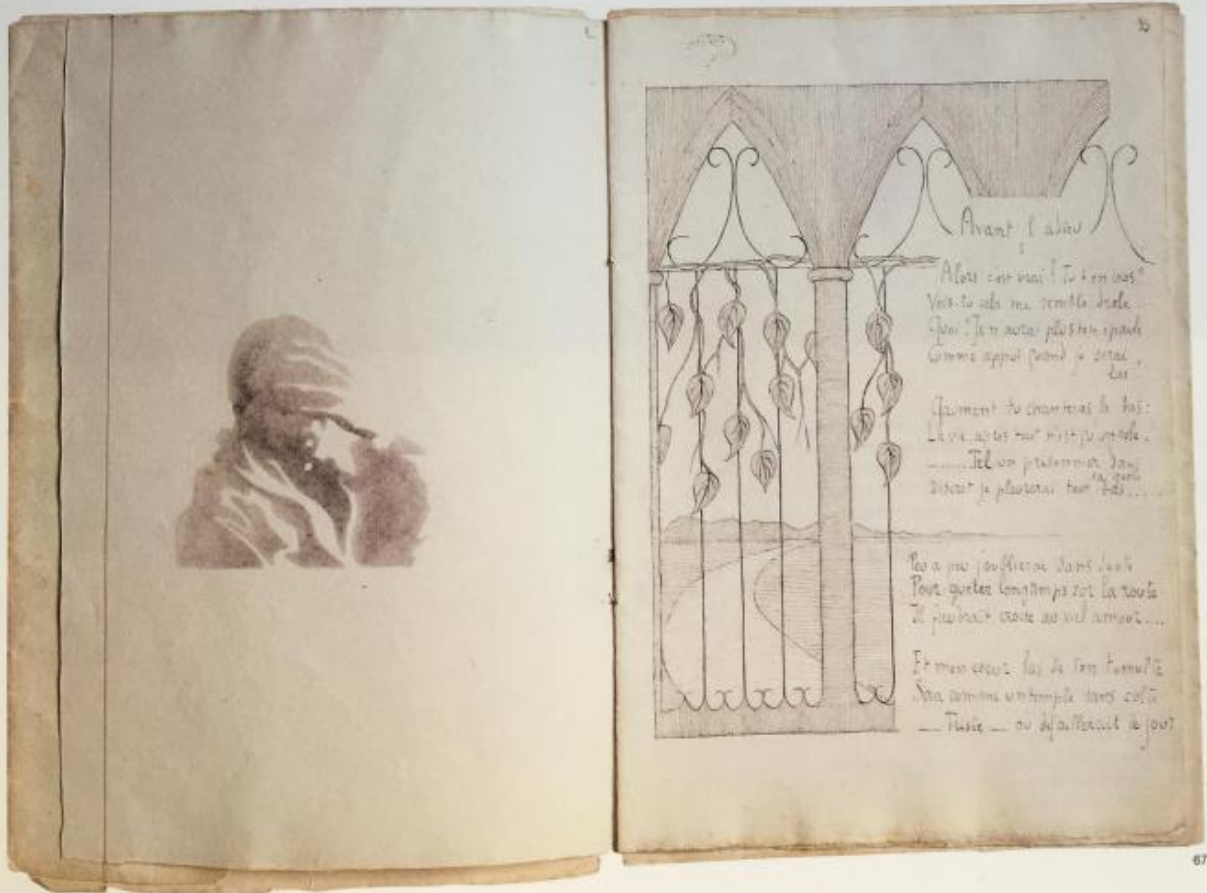 Avant l'adieu
Alors c'est vrai ! Tu t'en vas ?
Vois-tu cela me semble drole...
Quoi ! Je n'aurai plus ton épaule
Comme appui quand je serai
las
Gaiment tu chanteras là bas :
La vie après tout n'est qu'un role.
Tel un prisonnier dans
sa geole
Discret je pleurerai tout bas....
Peu a peu j'oublierai sans doute
Pour guetter longtemps sur la route
Il faudrait croire au vieil amour....
Et mon cœur las de ton tumulte
Sera comme un temple sans culte
— Triste — ou défaillerait le jour
67